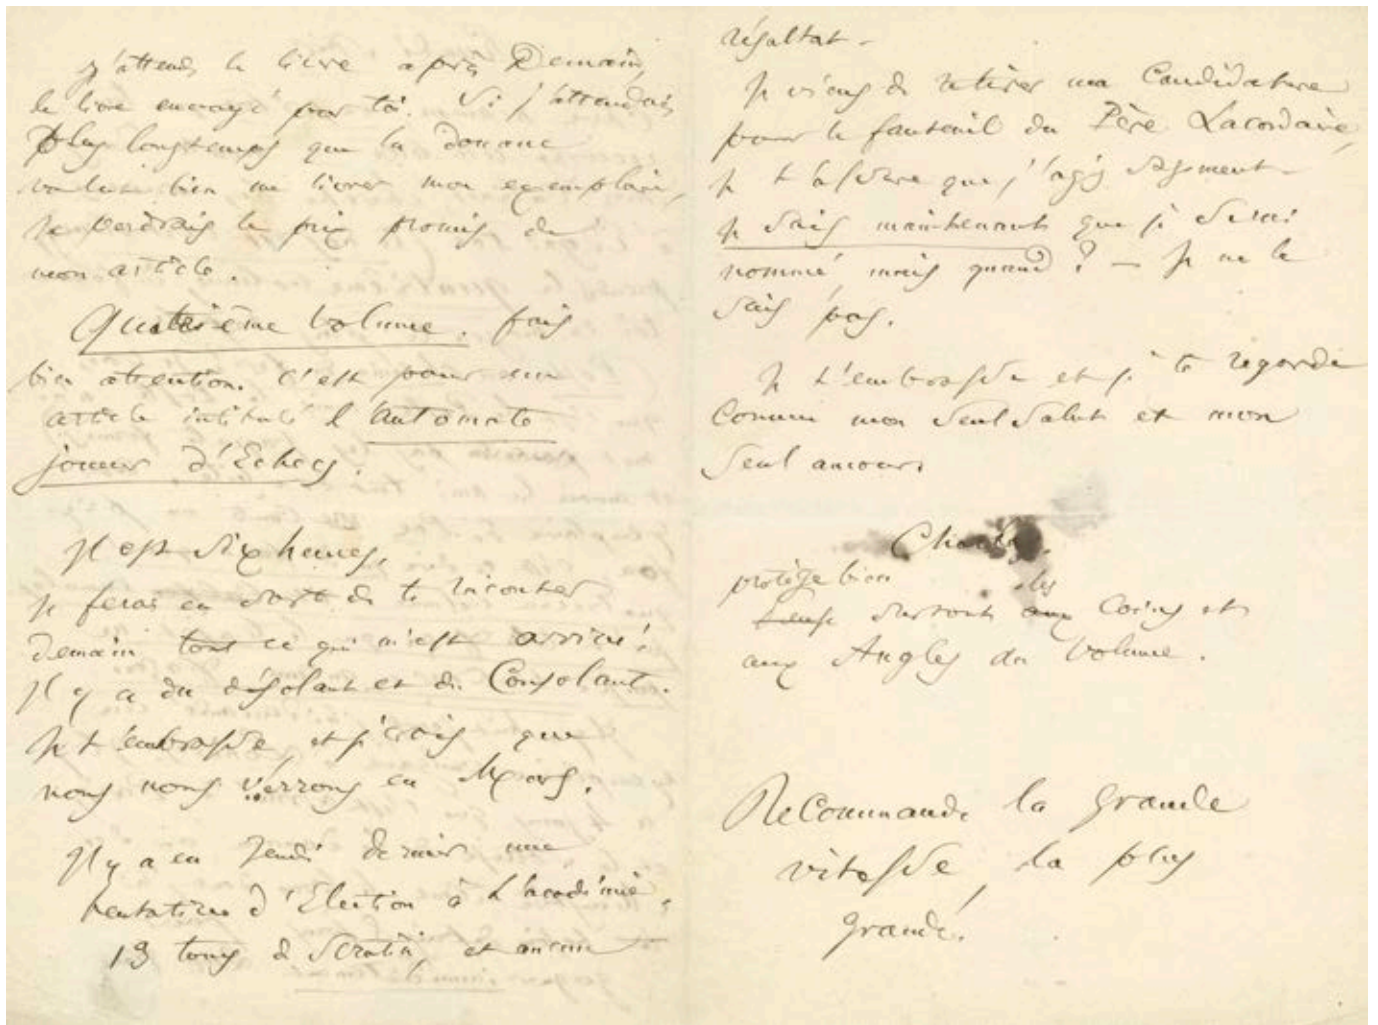 J'attends le livre après Demain,
le livre envoyé par toi. Si j'attendais
Plus longtemps que la douane
voulut bien me livrer mon exemplaire,
je perdrais le prix promis de
mon article.
Quatrième Volume. fais
bien attention. C'est pour un
article intitulé l'automate
joueur d'Echecs.
Il est Six heures.
Je ferai en sorte de te raconter
demain tout ce qui m'est arrivé.
Il y a du désolant et du Consolant.
Je t'embrasse, et je crois que
nous nous verrons en Mars.
Il y a eu Jeudi dernier une
tentative d'Election à l'académie,
13 tours de Scrutin, et aucun
résultat -
Je viens de retirer ma Candidature
pour le fauteuil du Père Lacordaire,
Je t'assure que j'agis sagement -
Je sais maintenant que je serai
nommé, mais quand ? — Je ne le
sais pas.
Je t'embrasse et je te regarde
Comme mon Seul Salut et mon
Seul amour.
Charles.
protège bien
surtout les Coins et
aux Angles du Volume.
Recommande la grande
vitesse, la plus
grande.